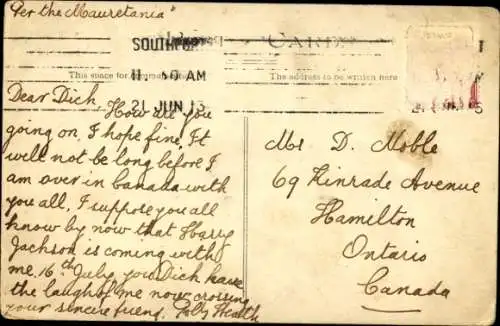 Per the "Mauretania"
SOUTHPORT
CARD
This space for
The address to be written here
11. 30 AM
21 JUN 13
Dear Dick, How are you
going on, I hope fine, It
will not be long before I
am over in Canada with
you all, I suppose you all
know by now that Harry
Jackson is coming with
me 16th July, you Dick have
the laugh of me now crossing
your sincere friend,
Mr D. Noble
69 Kinrade Avenue
Hamilton
Ontario
Canada